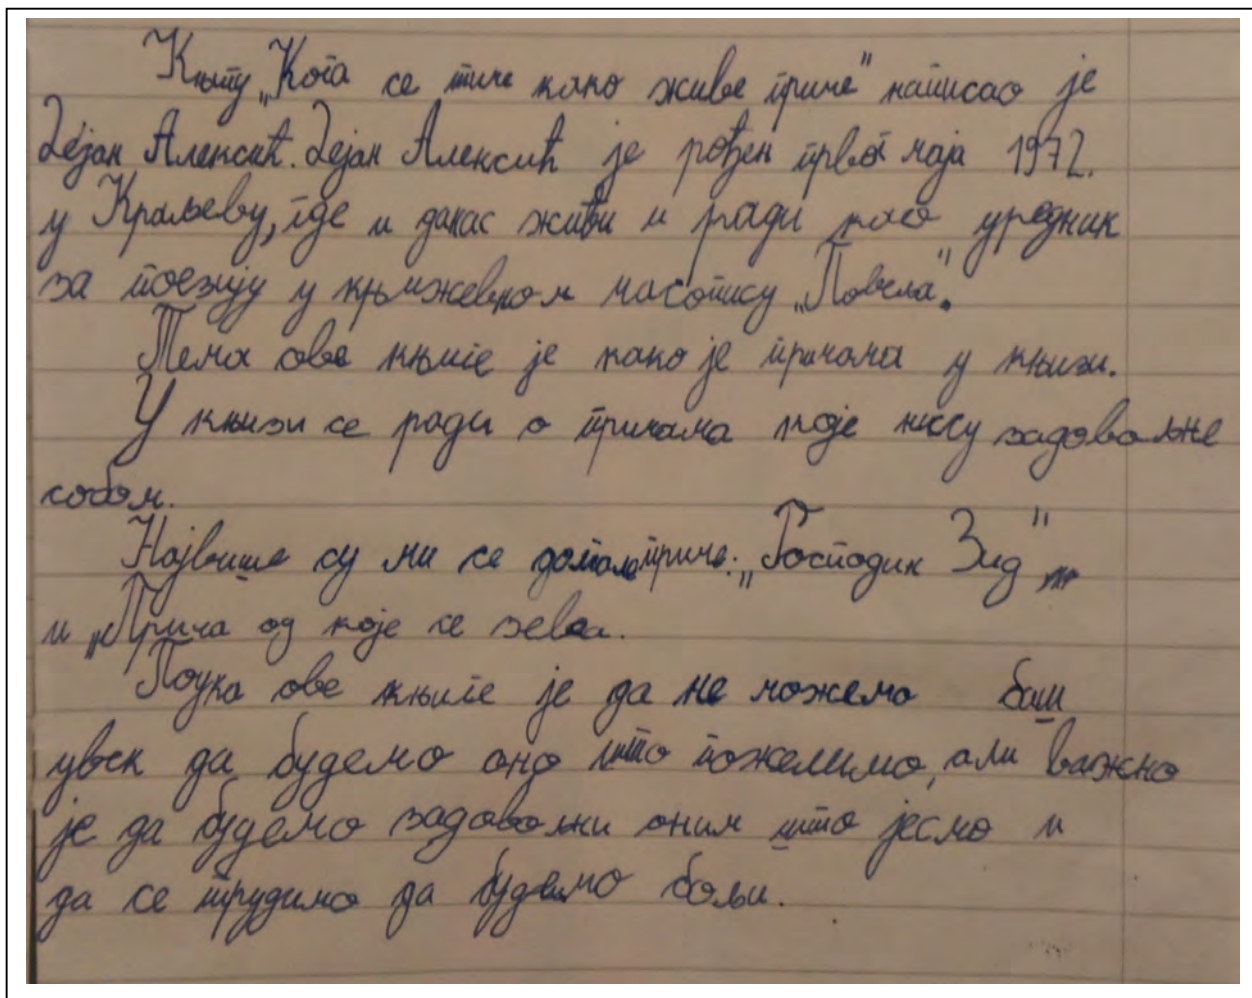 Књигу „Кога се тиче како живе приче" написао је
Дејан Алексић. Дејан Алексић је рођен првог маја 1972.
у Краљеву, где и данас живи и ради као уредник
за поезију у књижевном часопису „Повеља".
Тема ове књиге је како је причама у књизи.
У књизи се ради о причама које нису задовољне
собом.
Највише су ми се допале приче: „Господин Зид"
и „Прича од које се зева.
Поука ове књиге је да не можемо баш
увек да будемо оно што пожелимо, али важно
је да будемо задовољни оним што јесмо и
да се трудимо да будемо бољи.